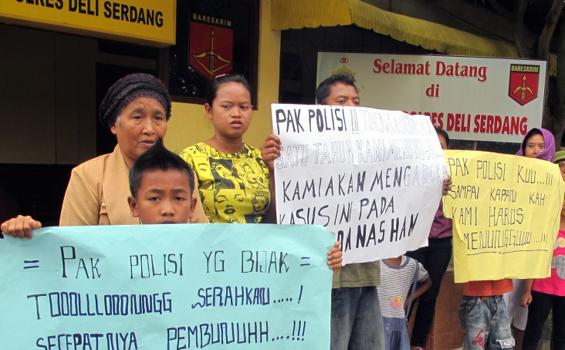 POLRES DELI SERDANG
BARESKRIM
Selamat Datang
di
POLRES DELI SERDANG
BARESKRIM
PAK POLISI !!!
SATU TAHUN KAMI
KAMI AKAN MENGADU
KASUS INI PADA
NASHAN
PAK POLISI KUU...!!!
SAMPAI KAPAN KAH
KAMI HARUS
MENUNGGUUU...!
= PAK POLISI YG BIJAK =
TOOOLLLOOONNNGG SERAHKAN.....!
SECEPATNYA PEMBUNUHH...!!!